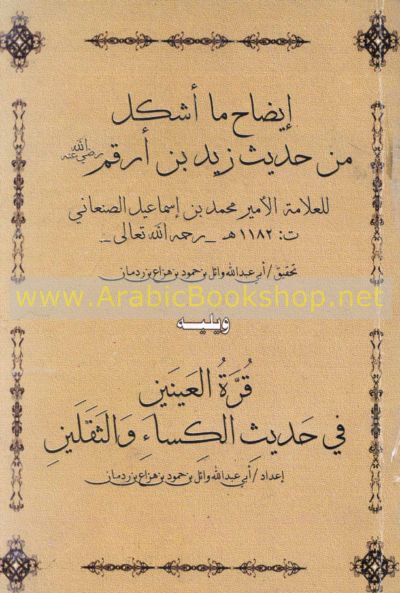 إيضاح ما أشكل
من حديث زيد بن أرقم رضي الله عنه
للعلامة الأمير محمد بن إسماعيل الصنعاني
ت: ١١٨٢ هـ _ رحمه الله تعالى _
تحقيق / أبي عبد الله وائل بن حمود بن هزاع بن ردمان
www.ArabicBookshop.net
ويليه
قُرَّةُ العينين
في حَديثِ الكِساءِ وَالثَقَلَينِ
إعداد / أبي عبد الله وائل بن حمود بن هزاع بن ردمان